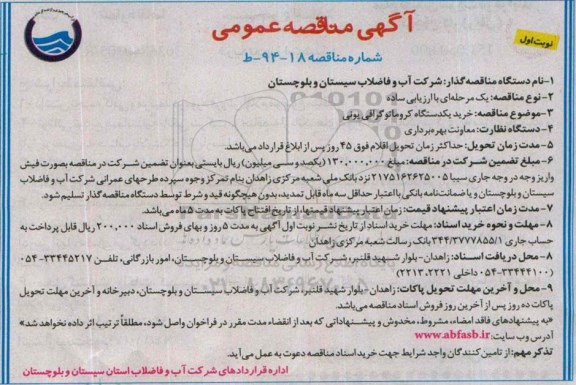 آگهی مناقصه عمومی
نوبت اول
شماره مناقصه ۱۸-۹۴-ط
۱-نام دستگاه مناقصه گذار: شرکت آب و فاضلاب سیستان و بلوچستان
۲-نوع مناقصه: یک مرحله‌ای با ارزیابی ساده
۳-موضوع مناقصه: خرید یکدستگاه کروماتوگرافی یونی
۴-دستگاه نظارت: معاونت بهره‌برداری
۵-مدت زمان تحویل: حداکثر زمان تحویل اقلام فوق ۴۵ روز پس از ابلاغ قرارداد می‌باشد.
۶-مبلغ تضمین شرکت در مناقصه: مبلغ ۱۳۰،۰۰۰،۰۰۰ (یکصد و سی میلیون) ریال بایستی بعنوان تضمین شرکت در مناقصه بصورت فیش
واریز وجه در وجه جاری سیبا ۲۱۷۵۱۶۲۶۲۵۰۰۵ نزد بانک ملی شعبه مرکزی زاهدان بنام تمرکز وجوه سپرده طرحهای عمرانی شرکت آب و فاضلاب
سیستان و بلوچستان و یا ضمانت‌نامه بانکی با اعتبار حداقل سه ماه قابل تمدید، بدون هیچگونه قید و شرط توسط دستگاه مناقصه گذار تسلیم شود.
۷-مدت زمان اعتبار پیشنهاد قیمت: زمان اعتبار پیشنهاد قیمتها، از تاریخ افتتاح پاکات به مدت ۵ ماه می‌باشد.
۸-مهلت و نحوه خرید اسناد: مهلت خرید اسناد از تاریخ نشر نوبت اول آگهی به مدت ۵ روز و بهای فروش اسناد ۲۰۰،۰۰۰ ریال قابل پرداخت به
حساب جاری ۳۴۴/۳۷۷۷۸۵۵/۱ بانک رسالت شعبه مرکزی زاهدان
۸-محل دریافت اسناد: زاهدان-بلوار شهید قلنبر، شرکت آب و فاضلاب سیستان و بلوچستان، امور بازرگانی، تلفن ۳۳۴۴۵۲۱۷-۰۵۴
۳۳۴۴۴۱۰۰-۰۵۴ داخلی (۲۲۲۱، ۲۲۱۳)
۹-محل و آخرین مهلت تحویل پاکات: زاهدان-بلوار شهید قلنبر، شرکت آب و فاضلاب سیستان و بلوچستان، دبیرخانه و آخرین مهلت تحویل
پاکات ده روز پس از آخرین روز فروش اسناد مناقصه می‌باشد.
«به پیشنهادهای فاقد امضاء، مشروط، مخدوش و پیشنهاداتی که بعد از انقضاء مدت مقرر در فراخوان واصل شود، مطلقاً ترتیب اثر داده نخواهد شد»
آدرس وب سایت: www.abfasb.ir
تذکر مهم: از تامین کنندگان واجد شرایط جهت خرید اسناد مناقصه دعوت به عمل می‌آید.
اداره قراردادهای شرکت آب و فاضلاب استان سیستان و بلوچستان